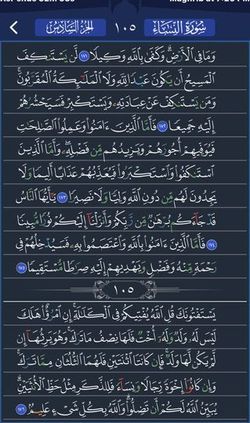 سُورَةُ النِّسَاءِ ١٠٥ الجزء السادس
وَمَا فِي الْأَرْضِ وَكَفَى بِاللَّهِ وَكِيلًا ١٧١ لَّن يَسْتَنكِفَ
الْمَسِيحُ أَن يَكُونَ عَبْدًا لِّلَّهِ وَلَا الْمَلَائِكَةُ الْمُقَرَّبُونَ
وَمَن يَسْتَنكِفْ عَنْ عِبَادَتِهِ وَيَسْتَكْبِرْ فَسَيَحْشُرُهُمْ
إِلَيْهِ جَمِيعًا ١٧٢ فَأَمَّا الَّذِينَ ءَامَنُوا وَعَمِلُوا الصَّالِحَاتِ
فَيُوَفِّيهِمْ أُجُورَهُمْ وَيَزِيدُهُم مِّن فَضْلِهِ وَأَمَّا الَّذِينَ
اسْتَنكَفُوا وَاسْتَكْبَرُوا فَيُعَذِّبُهُمْ عَذَابًا أَلِيمًا وَلَا
يَجِدُونَ لَهُم مِّن دُونِ اللَّهِ وَلِيًّا وَلَا نَصِيرًا ١٧٣ يَا أَيُّهَا النَّاسُ
قَدْ جَاءَكُم بُرْهَانٌ مِّن رَّبِّكُمْ وَأَنزَلْنَا إِلَيْكُمْ نُورًا مُّبِينًا
١٧٤ فَأَمَّا الَّذِينَ ءَامَنُوا بِاللَّهِ وَاعْتَصَمُوا بِهِ فَسَيُدْخِلُهُمْ فِي
رَحْمَةٍ مِّنْهُ وَفَضْلٍ وَيَهْدِيهِمْ إِلَيْهِ صِرَاطًا مُّسْتَقِيمًا ١٧٥
١٠٥
يَسْتَفْتُونَكَ قُلِ اللَّهُ يُفْتِيكُمْ فِي الْكَلَالَةِ إِنِ امْرُؤٌ هَلَكَ
لَيْسَ لَهُ وَلَدٌ وَلَهُ أُخْتٌ فَلَهَا نِصْفُ مَا تَرَكَ وَهُوَ يَرِثُهَا إِن
لَّمْ يَكُن لَّهَا وَلَدٌ فَإِن كَانَتَا اثْنَتَيْنِ فَلَهُمَا الثُّلُثَانِ مِمَّا تَرَكَ
وَإِن كَانُوا إِخْوَةً رِّجَالًا وَنِسَاءً فَلِلذَّكَرِ مِثْلُ حَظِّ الْأُنثَيَيْنِ
يُبَيِّنُ اللَّهُ لَكُمْ أَن تَضِلُّوا وَاللَّهُ بِكُلِّ شَيْءٍ عَلِيمٌ ١٧٦